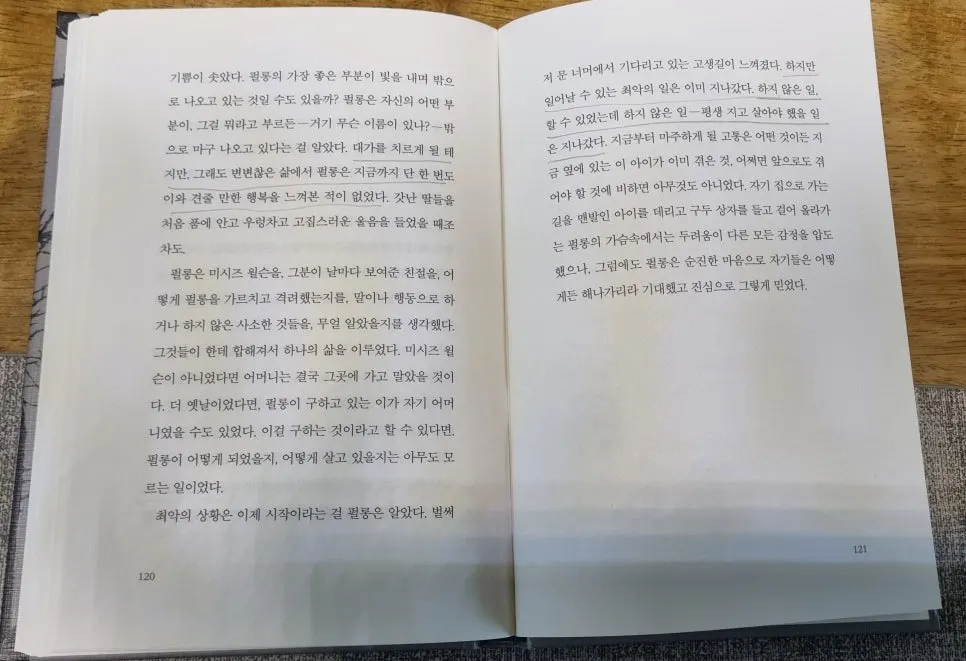 기쁨이 솟았다. 펄롱의 가장 좋은 부분이 빛을 내며 밖으
로 나오고 있는 것일 수도 있을까? 펄롱은 자신의 어떤 부
분이, 그걸 뭐라고 부르든—거기 무슨 이름이 있나?—밖
으로 마구 나오고 있다는 걸 알았다. 대가를 치르게 될 테
지만, 그래도 변변찮은 삶에서 펄롱은 지금까지 단 한 번도
이와 견줄 만한 행복을 느껴본 적이 없었다. 갓난 딸들을
처음 품에 안고 우렁차고 고집스러운 울음을 들었을 때조
차도.
펄롱은 미시즈 윌슨을, 그분이 날마다 보여준 친절을, 어
떻게 펄롱을 가르치고 격려했는지를, 말이나 행동으로 하
거나 하지 않은 사소한 것들을, 무얼 알았을지를 생각했다.
그것들이 한데 합해져서 하나의 삶을 이루었다. 미시즈 윌
슨이 아니었다면 어머니는 결국 그곳에 가고 말았을 것이
다. 더 옛날이었다면, 펄롱이 구하고 있는 이가 자기 어머
니였을 수도 있었다. 이걸 구하는 것이라고 할 수 있다면.
펄롱이 어떻게 되었을지, 어떻게 살고 있을지는 아무도 모
르는 일이었다.
최악의 상황은 이제 시작이라는 걸 펄롱은 알았다. 벌써
120
저 문 너머에서 기다리고 있는 고생길이 느껴졌다. 하지만
일어날 수 있는 최악의 일은 이미 지나갔다. 하지 않은 일,
할 수 있었는데 하지 않은 일—평생 지고 살아야 했을 일
은 지나갔다. 지금부터 마주하게 될 고통은 어떤 것이든 지
금 옆에 있는 이 아이가 이미 겪은 것, 어쩌면 앞으로도 겪
어야 할 것에 비하면 아무것도 아니었다. 자기 집으로 가는
길을 맨발인 아이를 데리고 구두 상자를 들고 걸어 올라가
는 펄롱의 가슴속에서는 두려움이 다른 모든 감정을 압도
했으나, 그럼에도 펄롱은 순진한 마음으로 자기들은 어떻
게든 해나가리라 기대했고 진심으로 그렇게 믿었다.
121